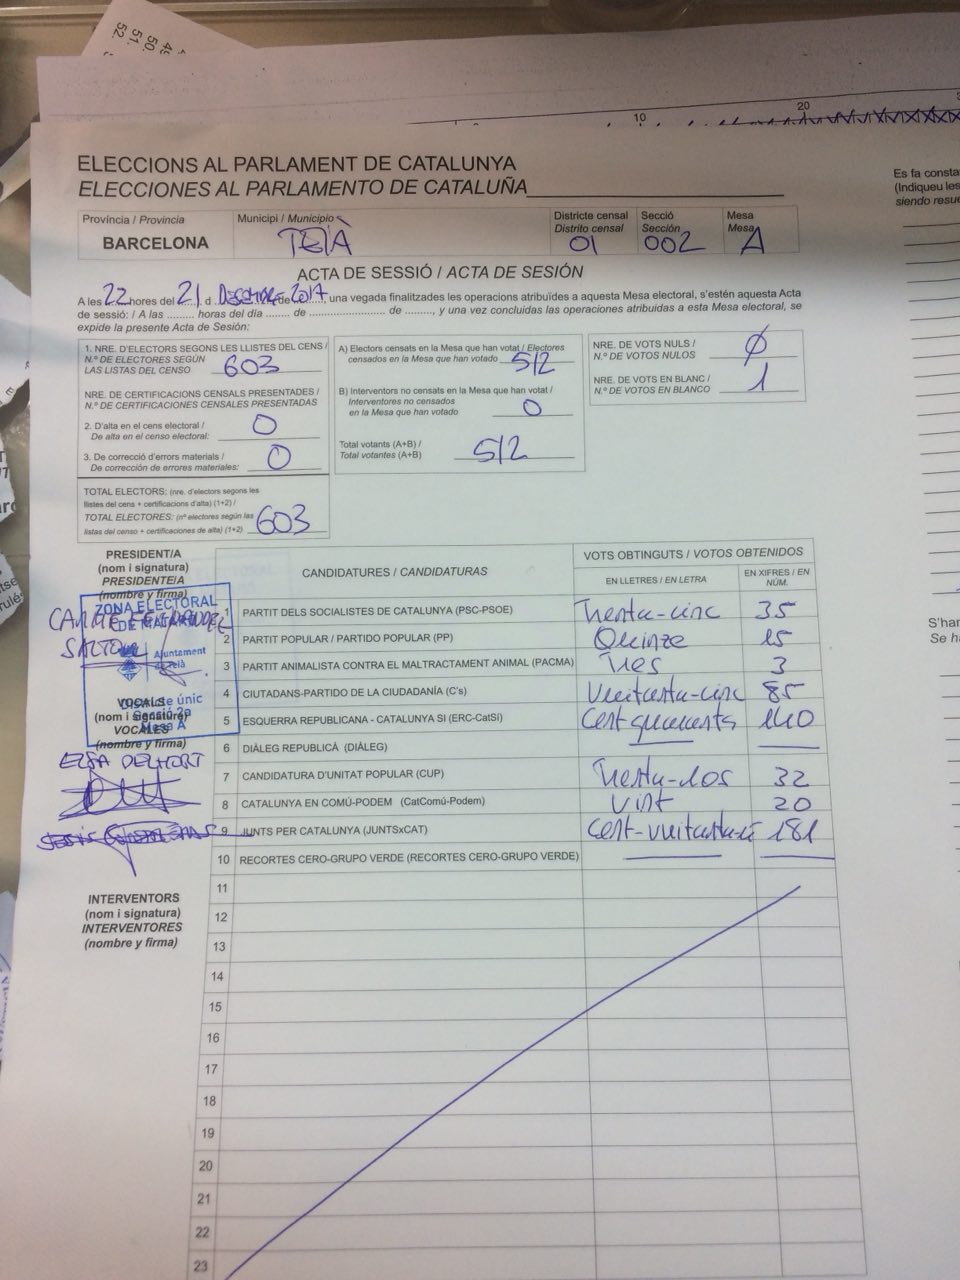 52.
51.
50.
10
20
ELECCIONS AL PARLAMENT DE CATALUNYA
ELECCIONES AL PARLAMENTO DE CATALUÑA
Es fa consta
(Indiqueu les
siendo resue
Província / Provincia
BARCELONA
Municipi / Municipio
TEIÀ
Districte censal
Distrito censal
01
Secció
Sección
002
Mesa
Mesa
A
ACTA DE SESSIÓ / ACTA DE SESIÓN
A les 22 hores del 21 d DESEMBRE de 2017 una vegada finalitzades les operacions atribuïdes a aquesta Mesa electoral, s'estén aquesta Acta
de sessió: / A las ........ horas del día ........ de ........................ de ........, y una vez concluidas las operaciones atribuidas a esta Mesa electoral, se
expide la presente Acta de Sesión:
1. NRE. D'ELECTORS SEGONS LES LLISTES DEL CENS /
N.º DE ELECTORES SEGÚN
LAS LISTAS DEL CENSO 603
NRE. DE CERTIFICACIONS CENSALS PRESENTADES /
N.º DE CERTIFICACIONES CENSALES PRESENTADAS
2. D'alta en el cens electoral /
De alta en el censo electoral: 0
3. De correcció d'errors materials /
De corrección de errores materiales: 0
TOTAL ELECTORS: (nre. d'electors segons les
llistes del cens + certificacions d'alta) (1+2) /
TOTAL ELECTORES: (nº electores según las
listas del censo + certificaciones de alta) (1+2) 603
A) Electors censats en la Mesa que han votat / Electores
censados en la Mesa que han votado 512
B) Interventors no censats en la Mesa que han votat /
Interventores no censados
en la Mesa que han votado 0
Total votants (A+B) /
Total votantes (A+B) 512
NRE. DE VOTS NULS /
N.º DE VOTOS NULOS 0
NRE. DE VOTS EN BLANC /
N.º DE VOTOS EN BLANCO 1
PRESIDENT/A
(nom i signatura)
PRESIDENTE/A
(nombre y firma)
ZONA ELECTORAL
DE MATARÓ
Ajuntament
de Teià
Districte únic
Secció 2a
Mesa A
VOCALS
(nom i signature)
VOCALES
(nombre y firma)
INTERVENTORS
(nom i signatura)
INTERVENTORES
(nombre y firma)
CANDIDATURES / CANDIDATURAS
VOTS OBTINGUTS / VOTOS OBTENIDOS
EN LLETRES / EN LETRA
EN XIFRES / EN NÚM.
1 PARTIT DELS SOCIALISTES DE CATALUNYA (PSC-PSOE) Trenta-cinc 35
2 PARTIT POPULAR / PARTIDO POPULAR (PP) Quinze 15
3 PARTIT ANIMALISTA CONTRA EL MALTRACTAMENT ANIMAL (PACMA) Tres 3
4 CIUTADANS-PARTIDO DE LA CIUDADANÍA (C's) Vuitanta-cinc 85
5 ESQUERRA REPUBLICANA - CATALUNYA SI (ERC-CatSí) Cent quaranta 140
6 DIÀLEG REPUBLICÀ (DIÀLEG)
7 CANDIDATURA D'UNITAT POPULAR (CUP) Trenta-dos 32
8 CATALUNYA EN COMÚ-PODEM (CatComú-Podem) Vint 20
9 JUNTS PER CATALUNYA (JUNTSxCAT) Cent-vuitanta-u 181
10 RECORTES CERO-GRUPO VERDE (RECORTES CERO-GRUPO VERDE)
11
12
13
14
15
16
17
18
19
20
21
22
23
S'han
Se ha